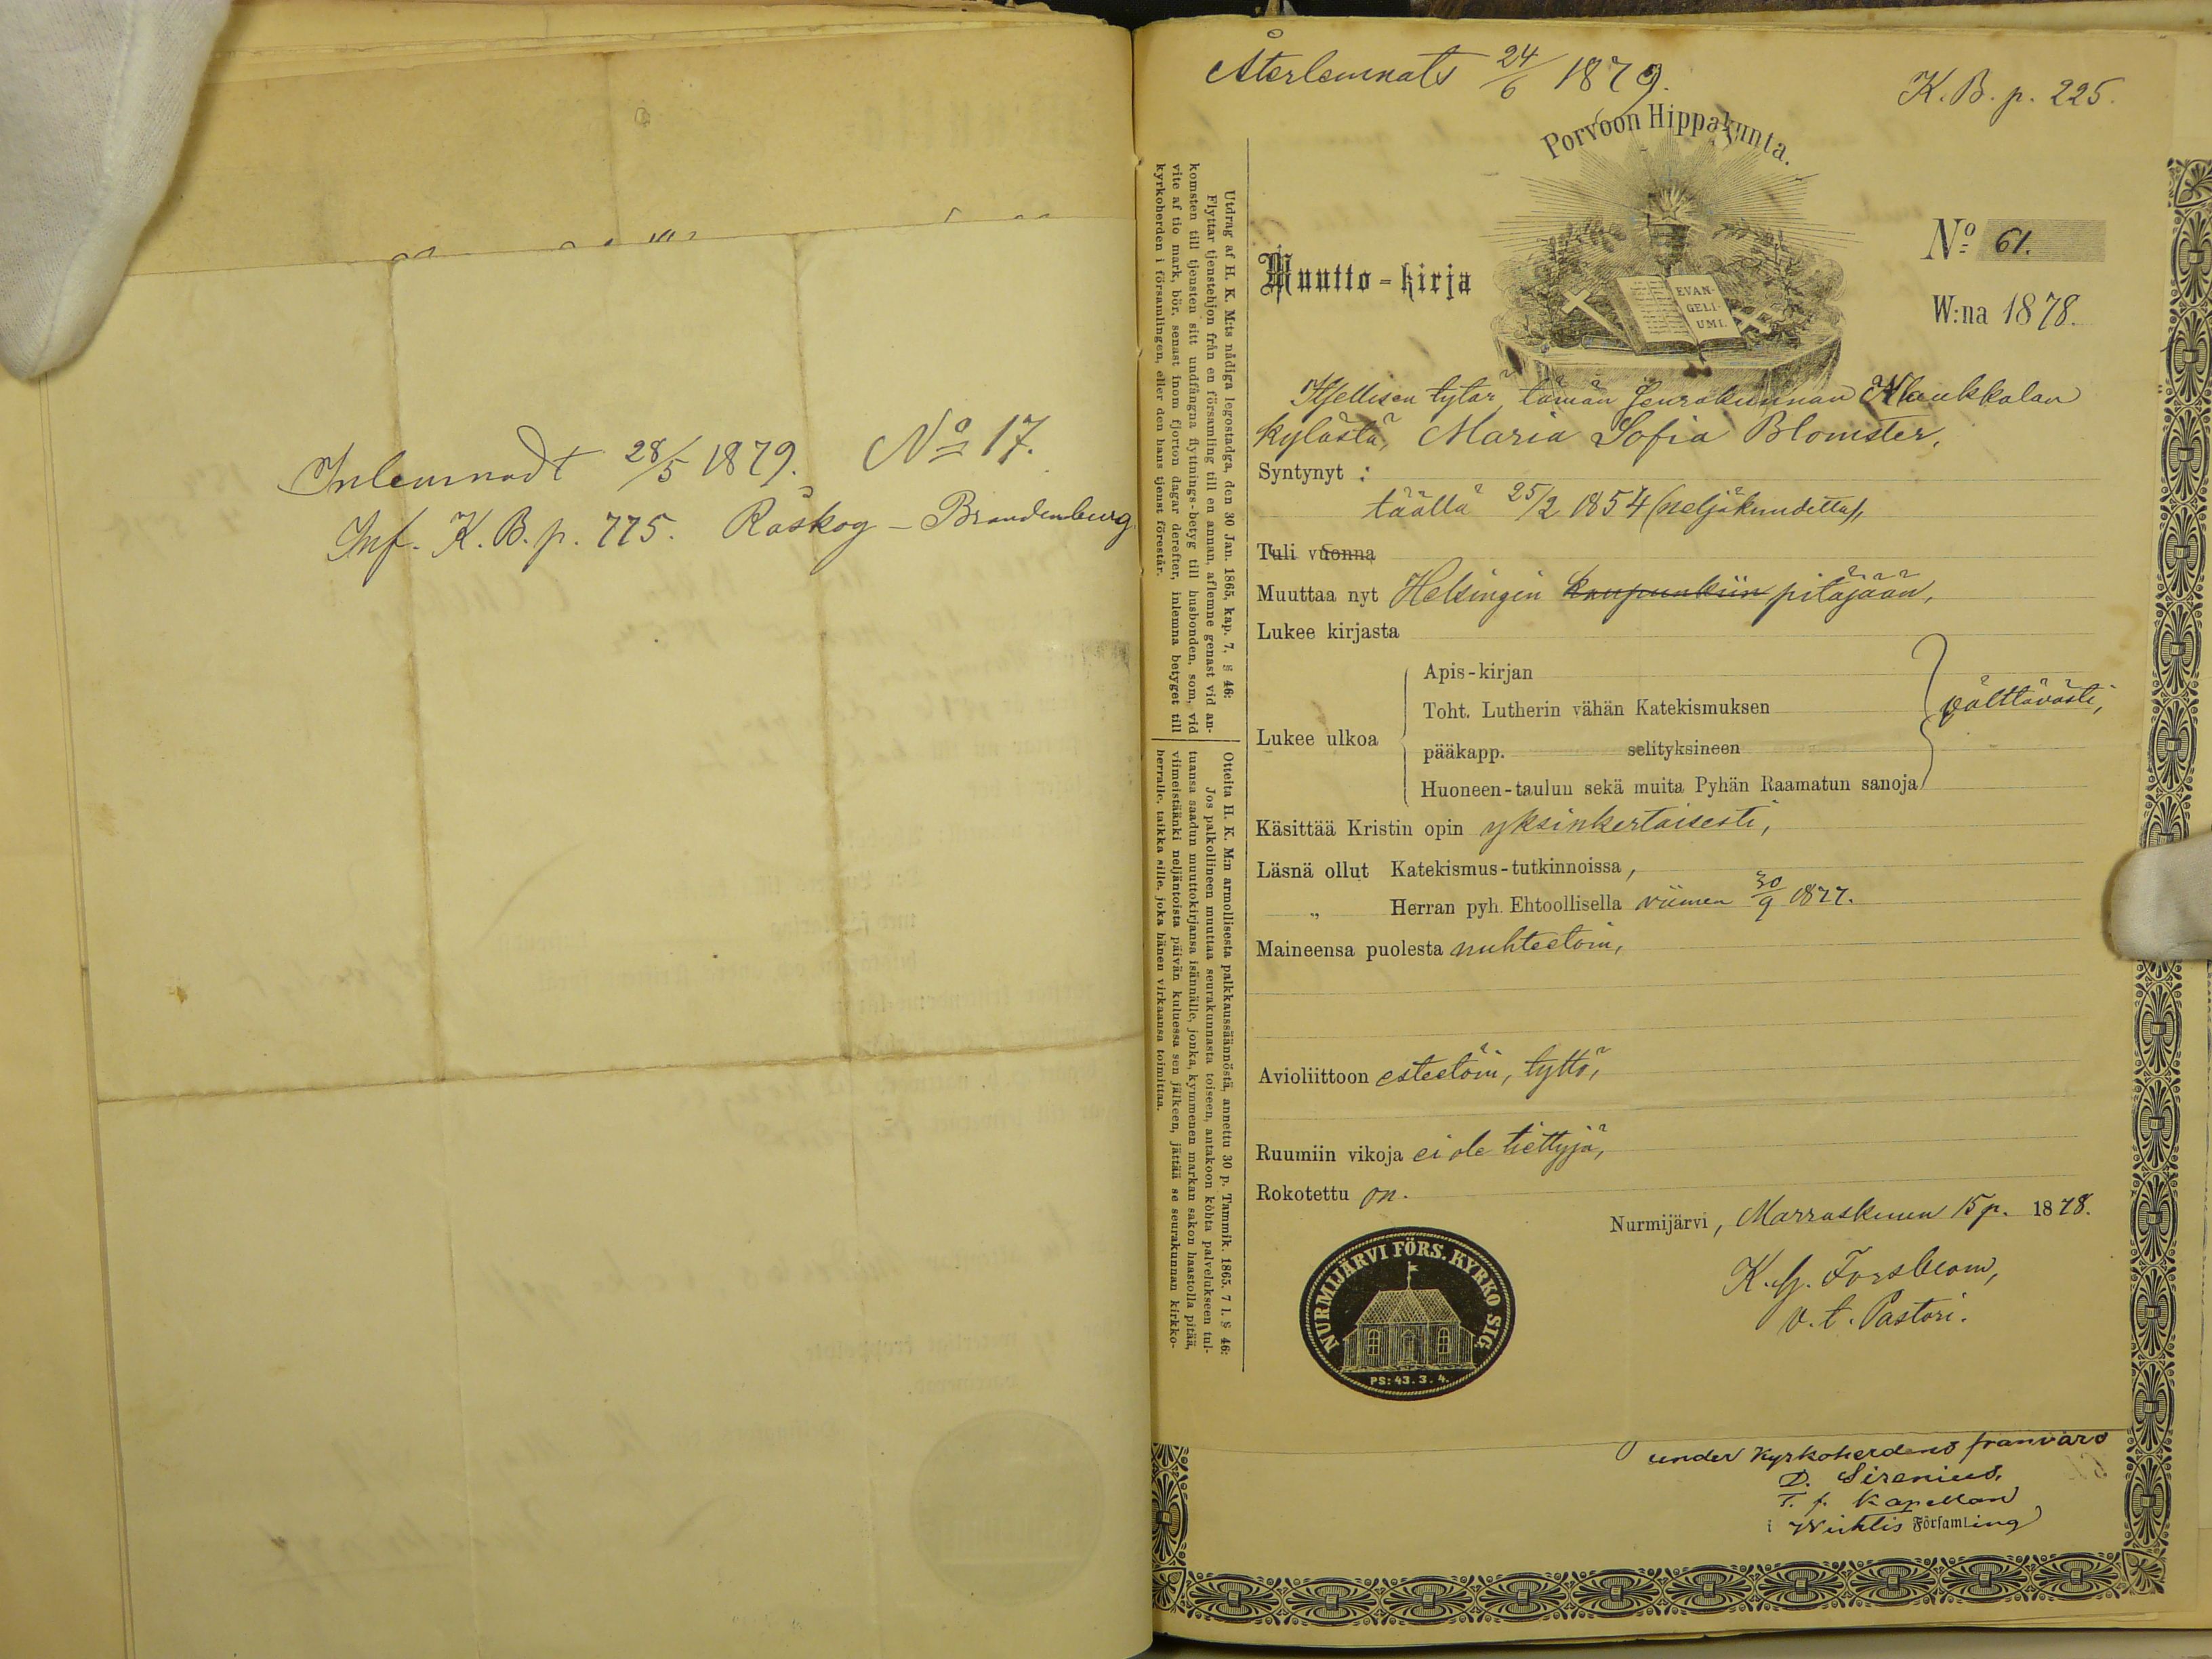 Inlemnadt 28/5 1879. No 17.
Inf. K. B. p. 775. Råskog - Brandenburg
Återlemnats 24/6 1879.
K. B. p. 225.
Porvoon Hippakunta.
EVAN-
GELI-
UMI.
Muutto-kirja
No 61.
W:na 1878.
Itsellisen tytär tämän Seurakunnan Klaukkalan
kylästä, Maria Sofia Blomster,
Syntynyt :
täällä 25/2 1854 (neljäkuudetta),
Tuli vuonna
Muuttaa nyt Helsingin kaupunkiin pitäjään,
Lukee kirjasta
Apis-kirjan
Toht. Lutherin vähän Katekismuksen
välttävästi,
Lukee ulkoa
pääkapp. selityksineen
Huoneen-taulun sekä muita Pyhän Raamatun sanoja
Käsittää Kristin opin yksinkertaisesti,
Läsnä ollut Katekismus-tutkinnoissa,
„ Herran pyh. Ehtoollisella viimen 30/9 1877.
Maineensa puolesta nuhteetoin,
Avioliittoon esteetöin, tyttö,
Ruumiin vikoja ei ole tiettyjä,
Rokotettu on.
Nurmijärvi, Marraskuun 15 p. 1878.
K. G. Forsblom,
v. t. Pastori.
NURMIJÄRVI FÖRS. KYRKO SIG.
PS: 43. 3. 4.
under Kyrkoherdens franvaro
D. Sirenius,
T. f. Kapellan
i Wichtis Församling
Utdrag af H. K. M:ts nådiga legostadga, den 30 Jan. 1865, kap. 7, § 46:
Flyttar tjenstehjon från en församling till en annan, aflemne genast vid an-
komsten till tjensten sitt undfångna flyttnings-betyg till husbonden, som, vid
vite af tio mark, bör, senast inom fjorton dagar derefter, inlemna betyget till
kyrkoherden i församlingen, eller den hans tjenst förestår.
Otteita H. K. M:n armollisesta palkkaussäännöstä, annettu 30 p. Tammik. 1865. 7 l. § 46:
Jos palkollineen muuttaa seurakunnasta toiseen, antakoon kohta palvelukseen tul-
tuansa saadun muuttokirjansa isännälle, jonka, kymmenen markan sakon haastolla pitää,
viimeistäänki neljäntoista päivän kuluessa sen jälkeen, jättää se seurakunnan kirkko-
herralle, taikka sille, joka hänen virkaansa toimittaa.